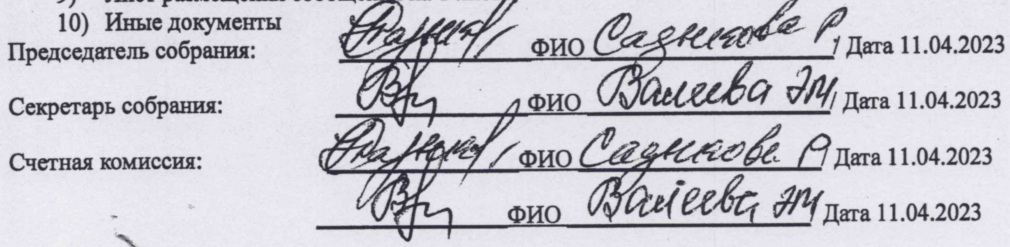 10) Иные документы
Председатель собрания: ФИО Садыкова Р / Дата 11.04.2023
Секретарь собрания: ФИО Валеева ЭМ / Дата 11.04.2023
Счетная комиссия: ФИО Садыкова Р / Дата 11.04.2023
ФИО Валеева ЭМ / Дата 11.04.2023